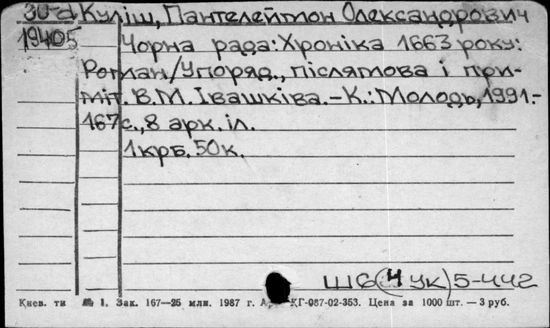 30-д Куліш, Пантелеймон Олександрович
19405
Чорна рада: Хроніка 1663 року:
Роман/Упоряд., післямова і при-
міт. В.М.Івашківа.-К.:Молодь,1991.-
167с., 8 арк.іл.
1крб.50к.
Ш6(4УК)5-442
Києв. ти № 1. Зак. 167—25 млн. 1987 г. А КГ-087-02-353. Цена за 1000 шт. — 3 руб.